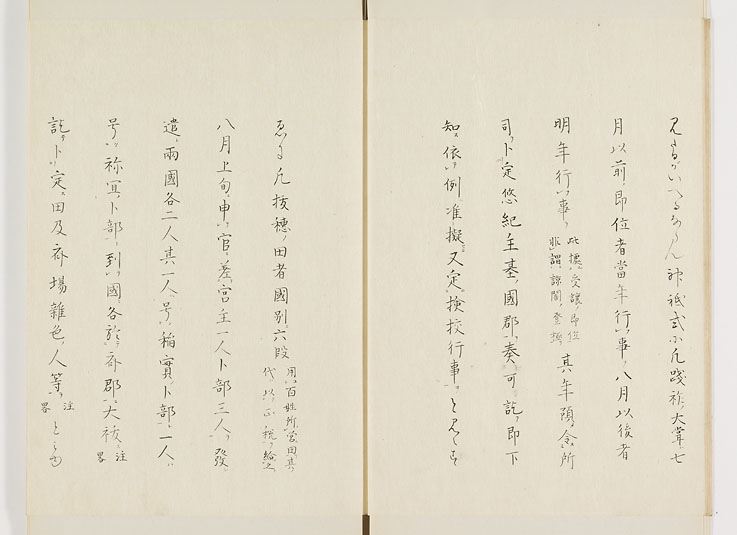 見えたるがいへるならん神祇式に凡踐祚大甞七
月以前即位者當年行事八月以後者
明年行事此據受讓即位非謂諒闇登極其年預令所
司卜定悠紀主基國郡奏可訖即下
知依例准擬又定檢校行事と見えて
凡拔穗田者國別六段用百姓所營田其代以正稅給之
八月上旬申官差宮主一人卜部三人發
遣兩國各二人其一人号稻實卜部一人
号祢冝卜部到國各於齋郡大祓注畧
訖卜定田及齋場雜色人等注畧と